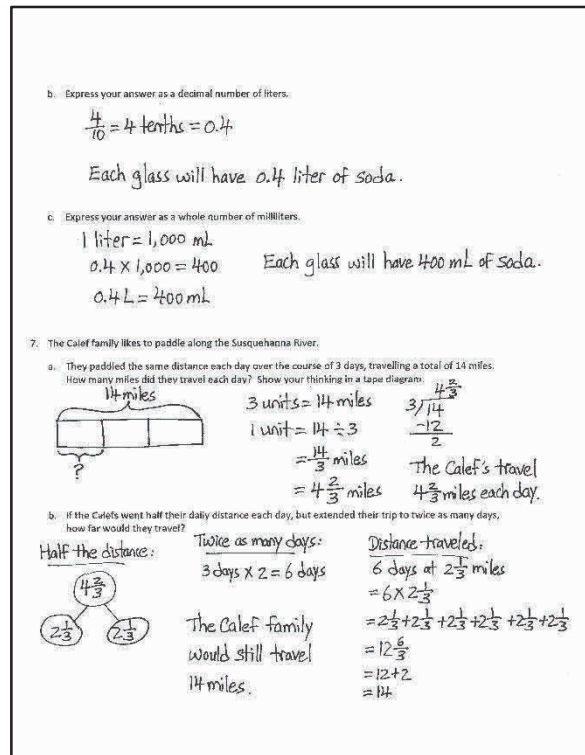 b. Express your answer as a decimal number of liters.
4/10 = 4 tenths = 0.4
Each glass will have 0.4 liter of soda.
c. Express your answer as a whole number of milliliters.
1 liter = 1,000 mL
0.4 × 1,000 = 400
0.4 L = 400 mL
Each glass will have 400 mL of soda.
7. The Calef family likes to paddle along the Susquehanna River.
a. They paddled the same distance each day over the course of 3 days, travelling a total of 14 miles.
How many miles did they travel each day? Show your thinking in a tape diagram.
14 miles
?
3 units = 14 miles
1 unit = 14 ÷ 3
= 14/3 miles
= 4 2/3 miles
4 2/3
3/14
-12
2
The Calef's travel
4 2/3 miles each day.
b. If the Calefs went half their daily distance each day, but extended their trip to twice as many days,
how far would they travel?
Half the distance:
4 2/3
2 1/3 2 1/3
Twice as many days:
3 days × 2 = 6 days
The Calef family
would still travel
14 miles.
Distance traveled:
6 days at 2 1/3 miles
= 6 × 2 1/3
= 2 1/3 + 2 1/3 + 2 1/3 + 2 1/3 + 2 1/3 + 2 1/3
= 12 6/3
= 12 + 2
= 14